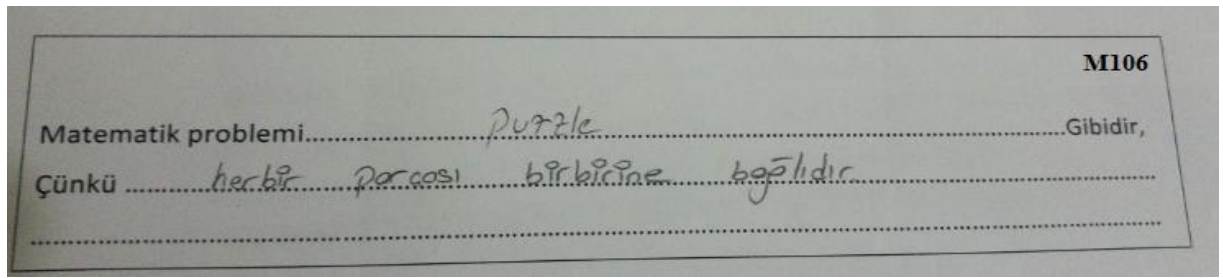 M106
Matematik problemi.....puzzle.....Gibidir,
Çünkü .....herbir parcası birbirine bgālıdır.....